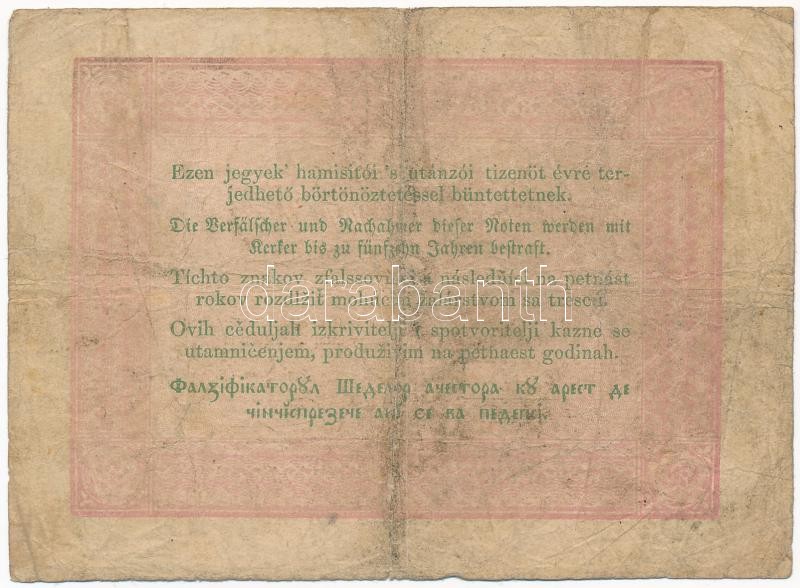 Ezen jegyek' hamisítói 's utánzói tizenöt évre ter-
jedhető börtönöztetéssel büntettetnek.
Die Verfälscher und Nachahmer dieser Noten werden mit
Kerker bis zu fünfzehn Jahren bestraft.
Tíchto znakov zfalssovi a následňíci na petnást
rokov rozdlžiť žalárstvom sa tresců.
darabanth
Ovih cěduljah izkrivitelji i spotvoritelji kazne se
utamničenjem, produživim na petnaest godinah.
Фалзіфікаторꙋл Шеделор ачестора кꙋ арест де
чінчіспрезече ані се ва педепсі.